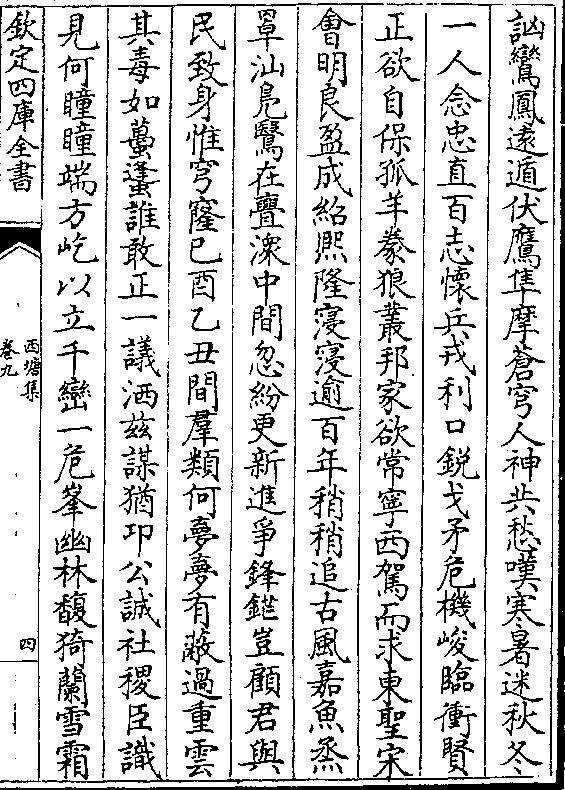 訩鸞鳳遠遁伏鷹隼摩蒼穹人神共愁嘆寒暑迷秋冬
一人念忠直百志懷兵戎利口鋭戈矛危機峻臨衝賢
正欲自保孤羊豢狼叢邦家欲常寧西駕而求東聖宋
會明良盈成紹熈隆寖寖逾百年稍稍追古風嘉魚烝
罩汕鳧鷖在亹潨中間忽紛更新進爭鋒鎧豈顧君與
民致身惟穹窿已酉乙丑間羣類何夢夢有蔽過重雲
其毒如蠆蜂誰敢正一議洒兹謀猶卭公誠社稷臣識
見何瞳瞳端方屹以立千巒一危峯幽林馥猗蘭雪霜
欽定四庫全書
西塘集
卷九
四